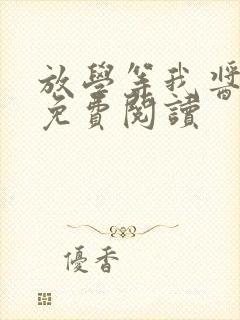 放學等我醬
免費閱讀
優香